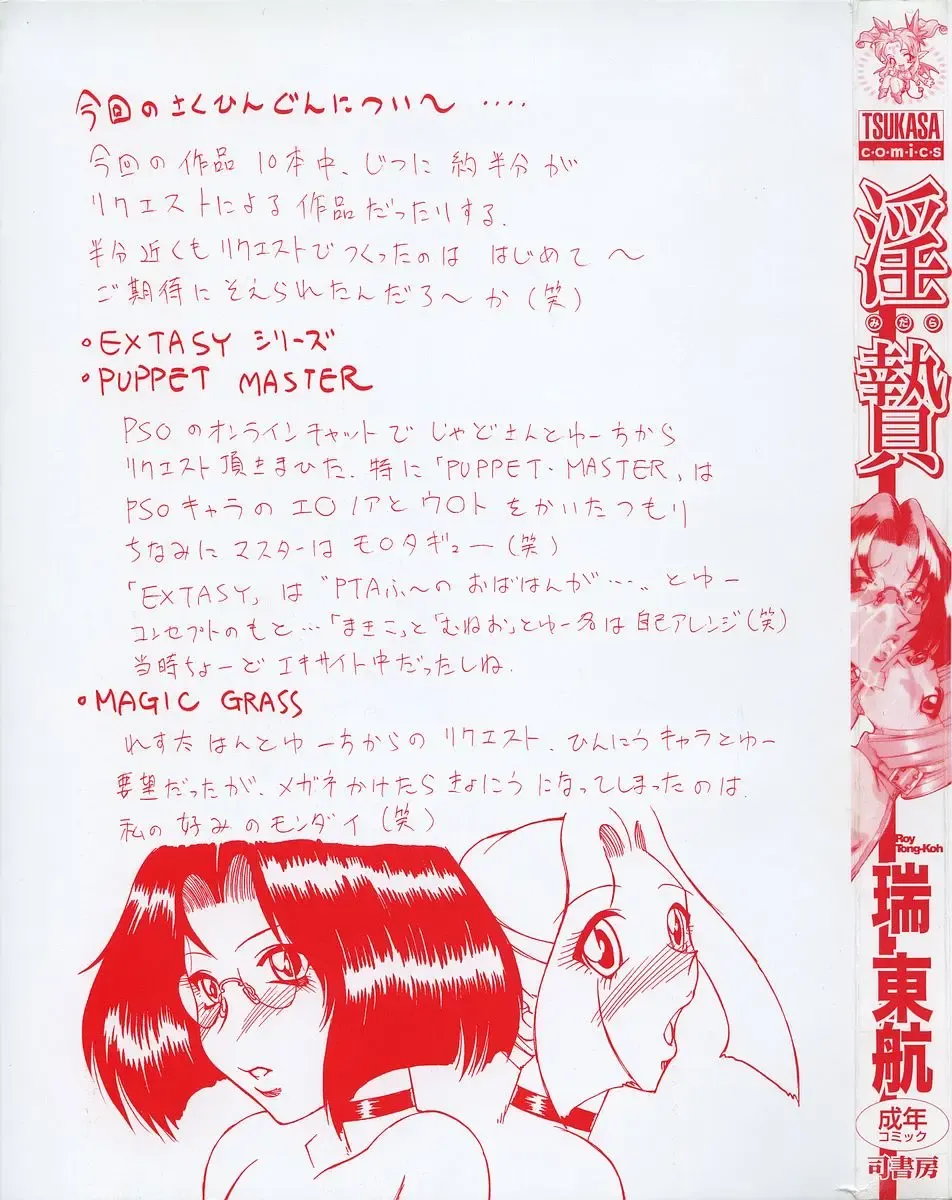 今回のさくひんぐんについ〜 ‥‥
今回の作品10本中、じつに約半分が
リクエストによる作品だったりする.
半分近くもリクエストでつくったのは はじめて〜
ご期待にそえられたんだろ〜か(笑)
・EXTASY シリーズ
・PUPPET MASTER
PSOのオンラインチャットでじゃどさんとゆーちから
リクエスト頂きまひた. 特に「PUPPET・MASTER」は
PSOキャラのエ〇ノアとウ〇トをかいたつもり
ちなみにマスターはモ〇タギュー(笑)
「EXTASY」は"PTAふ〜のおばはんが…"とゆー
コンセプトのもと…「まきこ」と「むねお」とゆー名は自己アレンジ(笑)
当時ちょーどエキサイト中だったしね.
・MAGIC GRASS
れす太はんとゆーちからのリクエスト. ひんにうキャラとゆー
要望だったが、メガネかけたらきょにうになってしまったのは
私の好みのモンダイ(笑)
TSUKASA
c・o・m・i・c・s
淫贄
みだら
Roy
Tong-Koh
瑞東航
成年
コミック
司書房